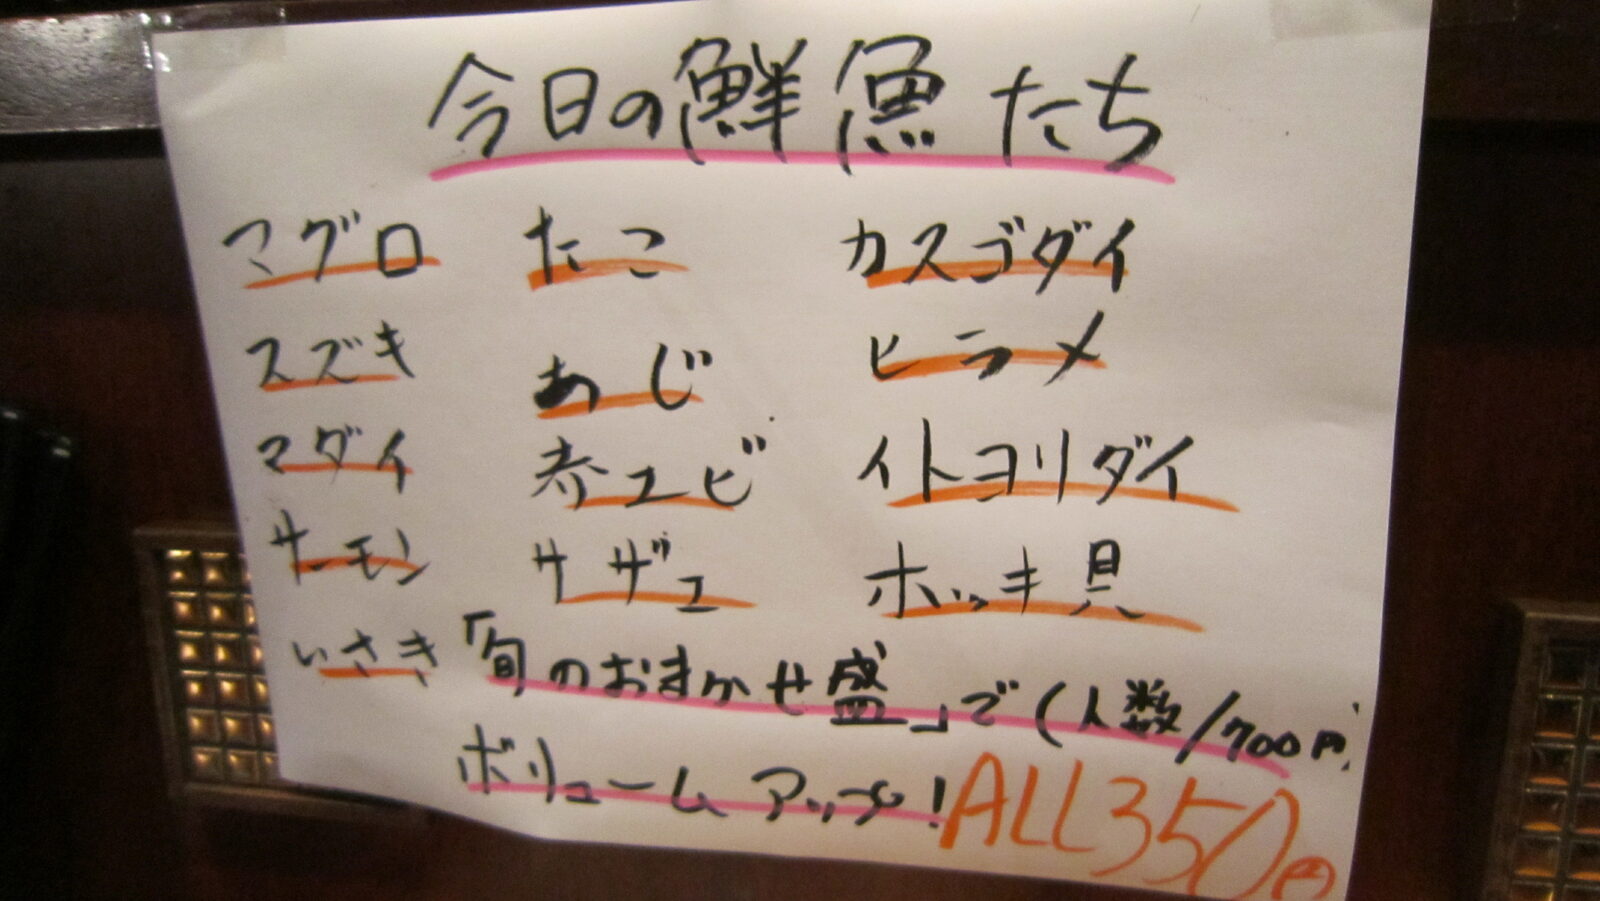 今日の鮮魚たち
マグロ たこ カスゴダイ
スズキ あじ ヒラメ
マダイ 赤エビ イトヨリダイ
サーモン サザエ ホッキ貝
いさき
「旬のおまかせ盛」で(人数/700円)
ボリュームアップ!
ALL350円